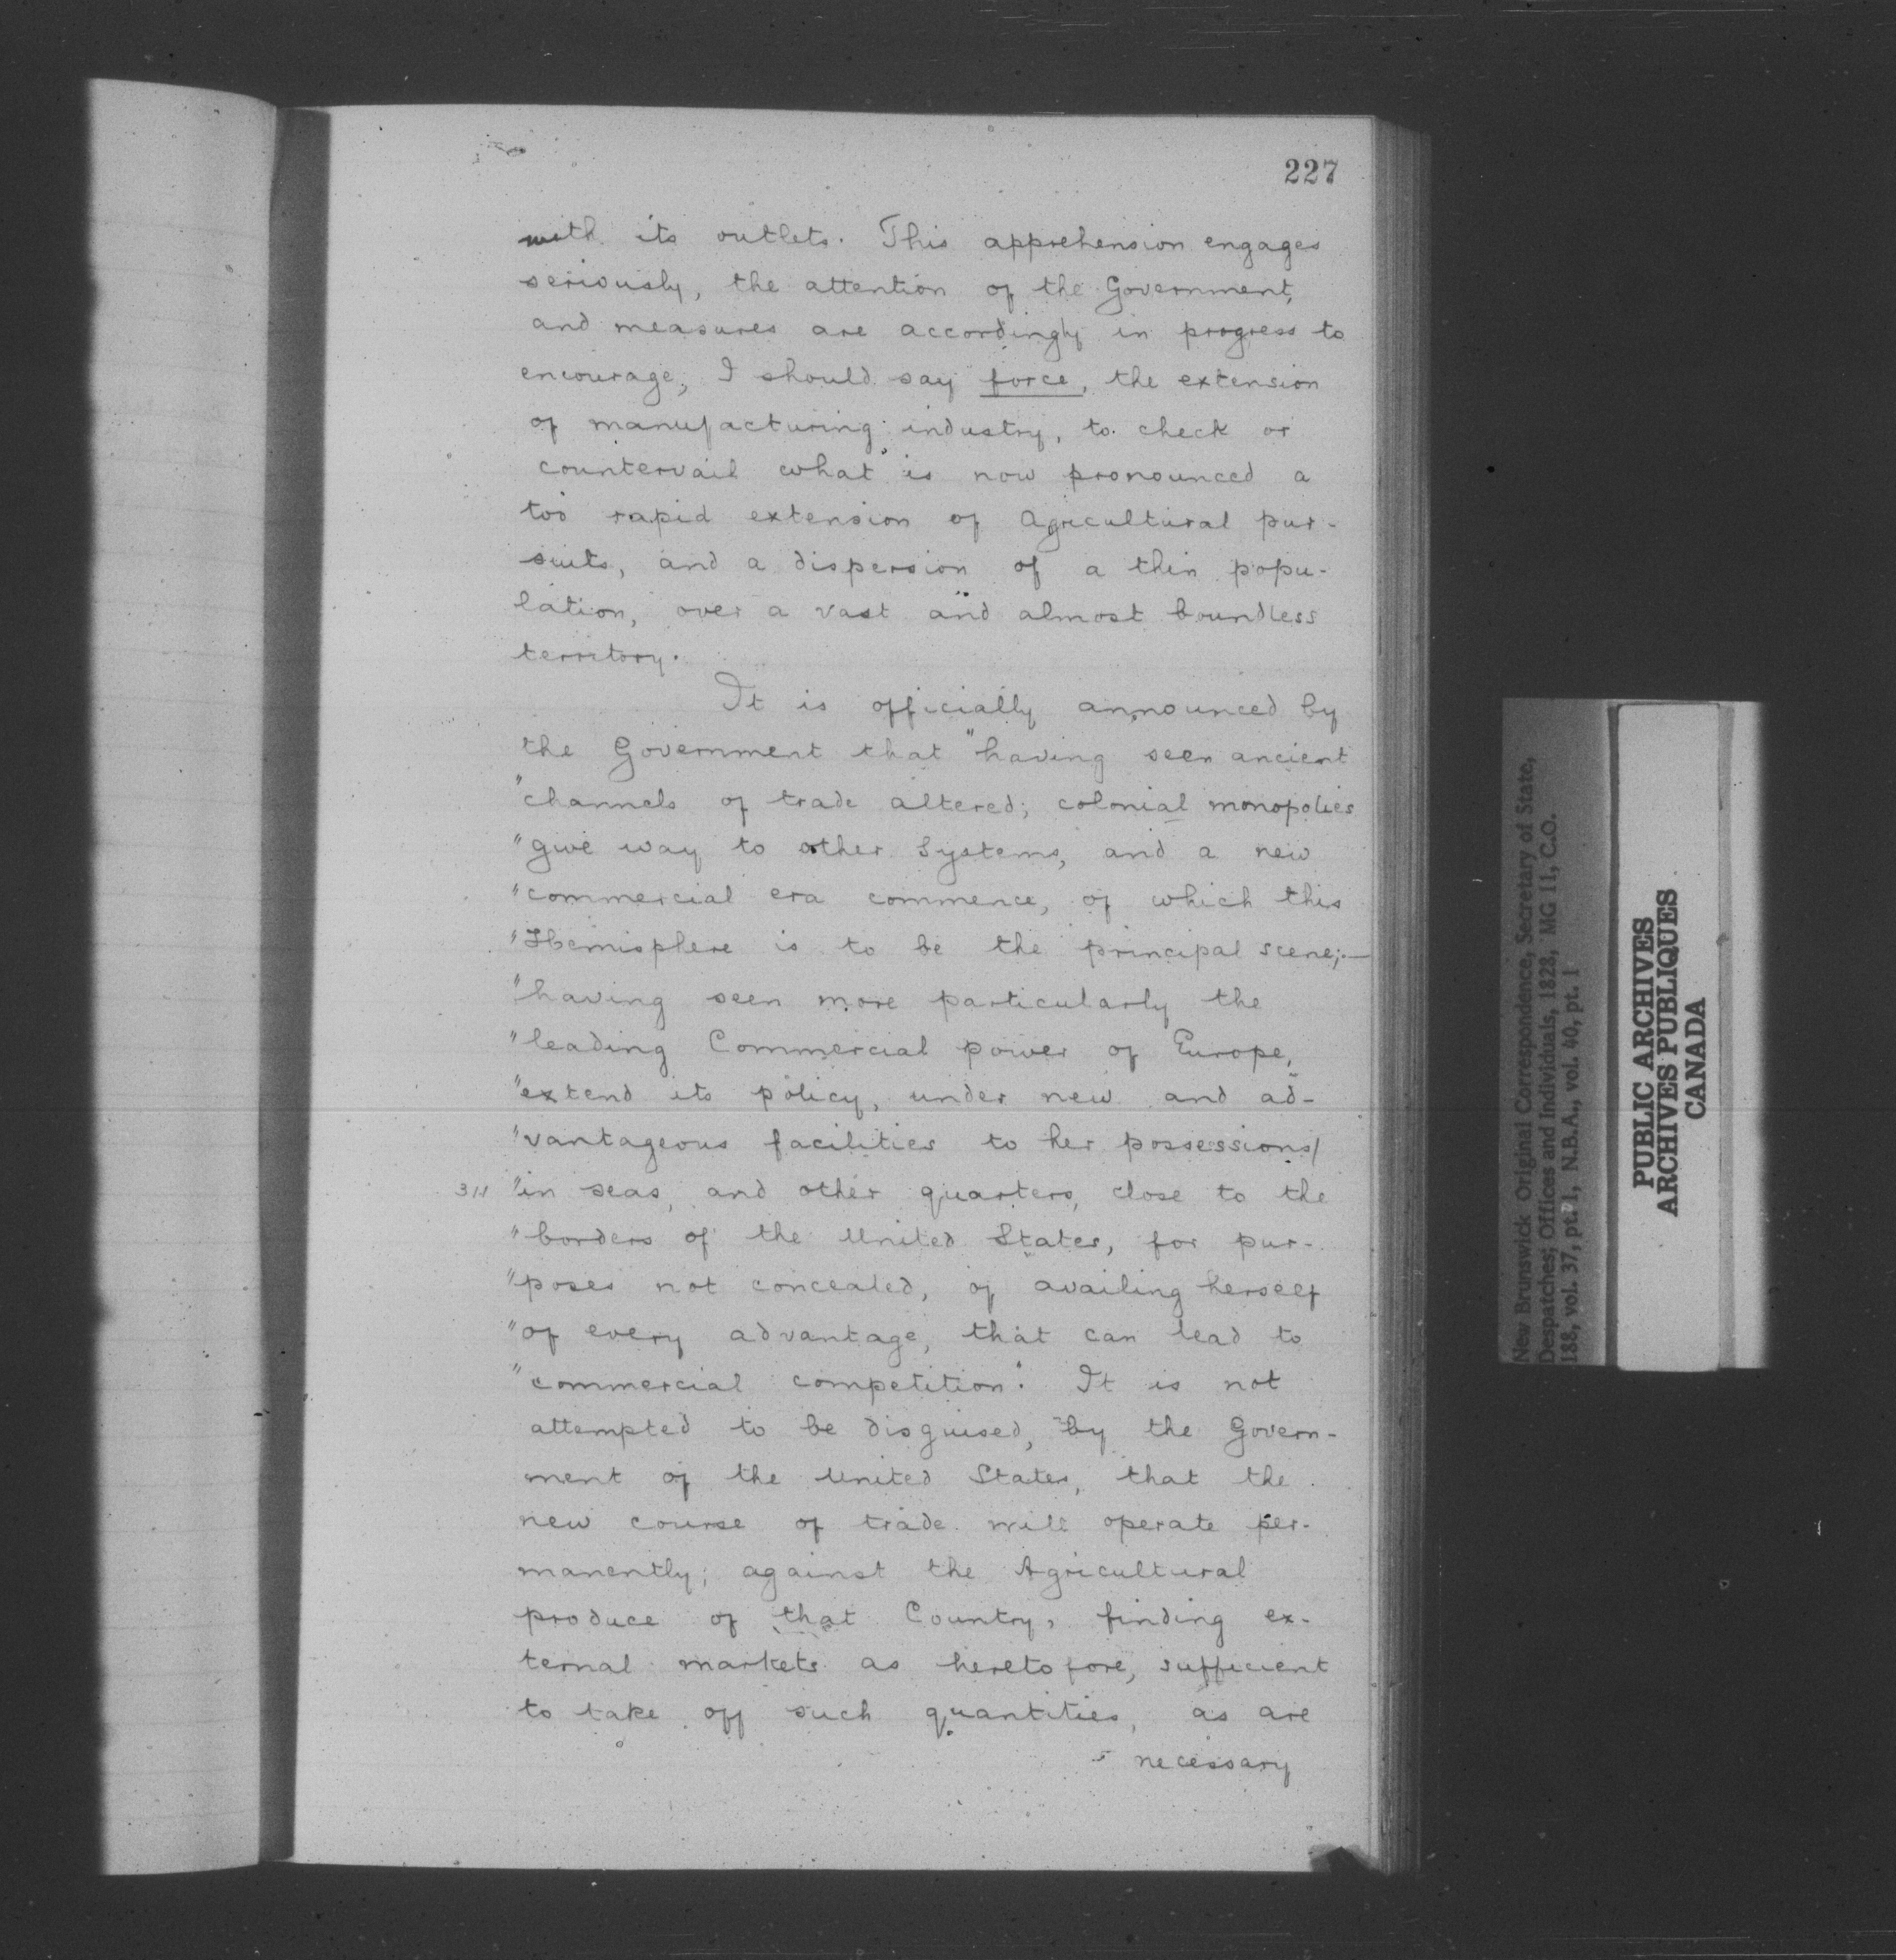 227
with its outlets. This apprehension engages
seriously, the attention of the Government,
and measures are accordingly in progress to
encourage, I should say force, the extension
of manufacturing industry, to check or
countervail what is now pronounced a
too rapid extension of Agricultural pur-
suits, and a dispersion of a thin popu-
lation, over a vast and almost boundless
territory.
It is officially announced by
the Government that "having seen ancient
"channels of trade altered; colonial monopolies
"give way to other Systems, and a new
"commercial era commence, of which this
"Hemisphere is to be the principal scene;—
"having seen more particularly the
"leading Commercial power of Europe,
"extend its policy, under new and ad-
"vantageous facilities to her possessions/
311 "in seas, and other quarters, close to the
"borders of the United States, for pur-
"poses not concealed, of availing herself
"of every advantage, that can lead to
"commercial competition". It is not
attempted to be disguised, by the Govern-
ment of the United States, that the
new course of trade will operate per-
manently; against the Agricultural
produce of that Country, finding ex-
ternal markets as heretofore, sufficient
to take off such quantities, as are
necessary
New Brunswick Original Correspondence, Secretary of State,
Despatches; Offices and Individuals, 1828, MG 11, C.O.
188, vol. 37, pt. 1, N.B.A., vol. 40, pt. 1
PUBLIC ARCHIVES
ARCHIVES PUBLIQUES
CANADA